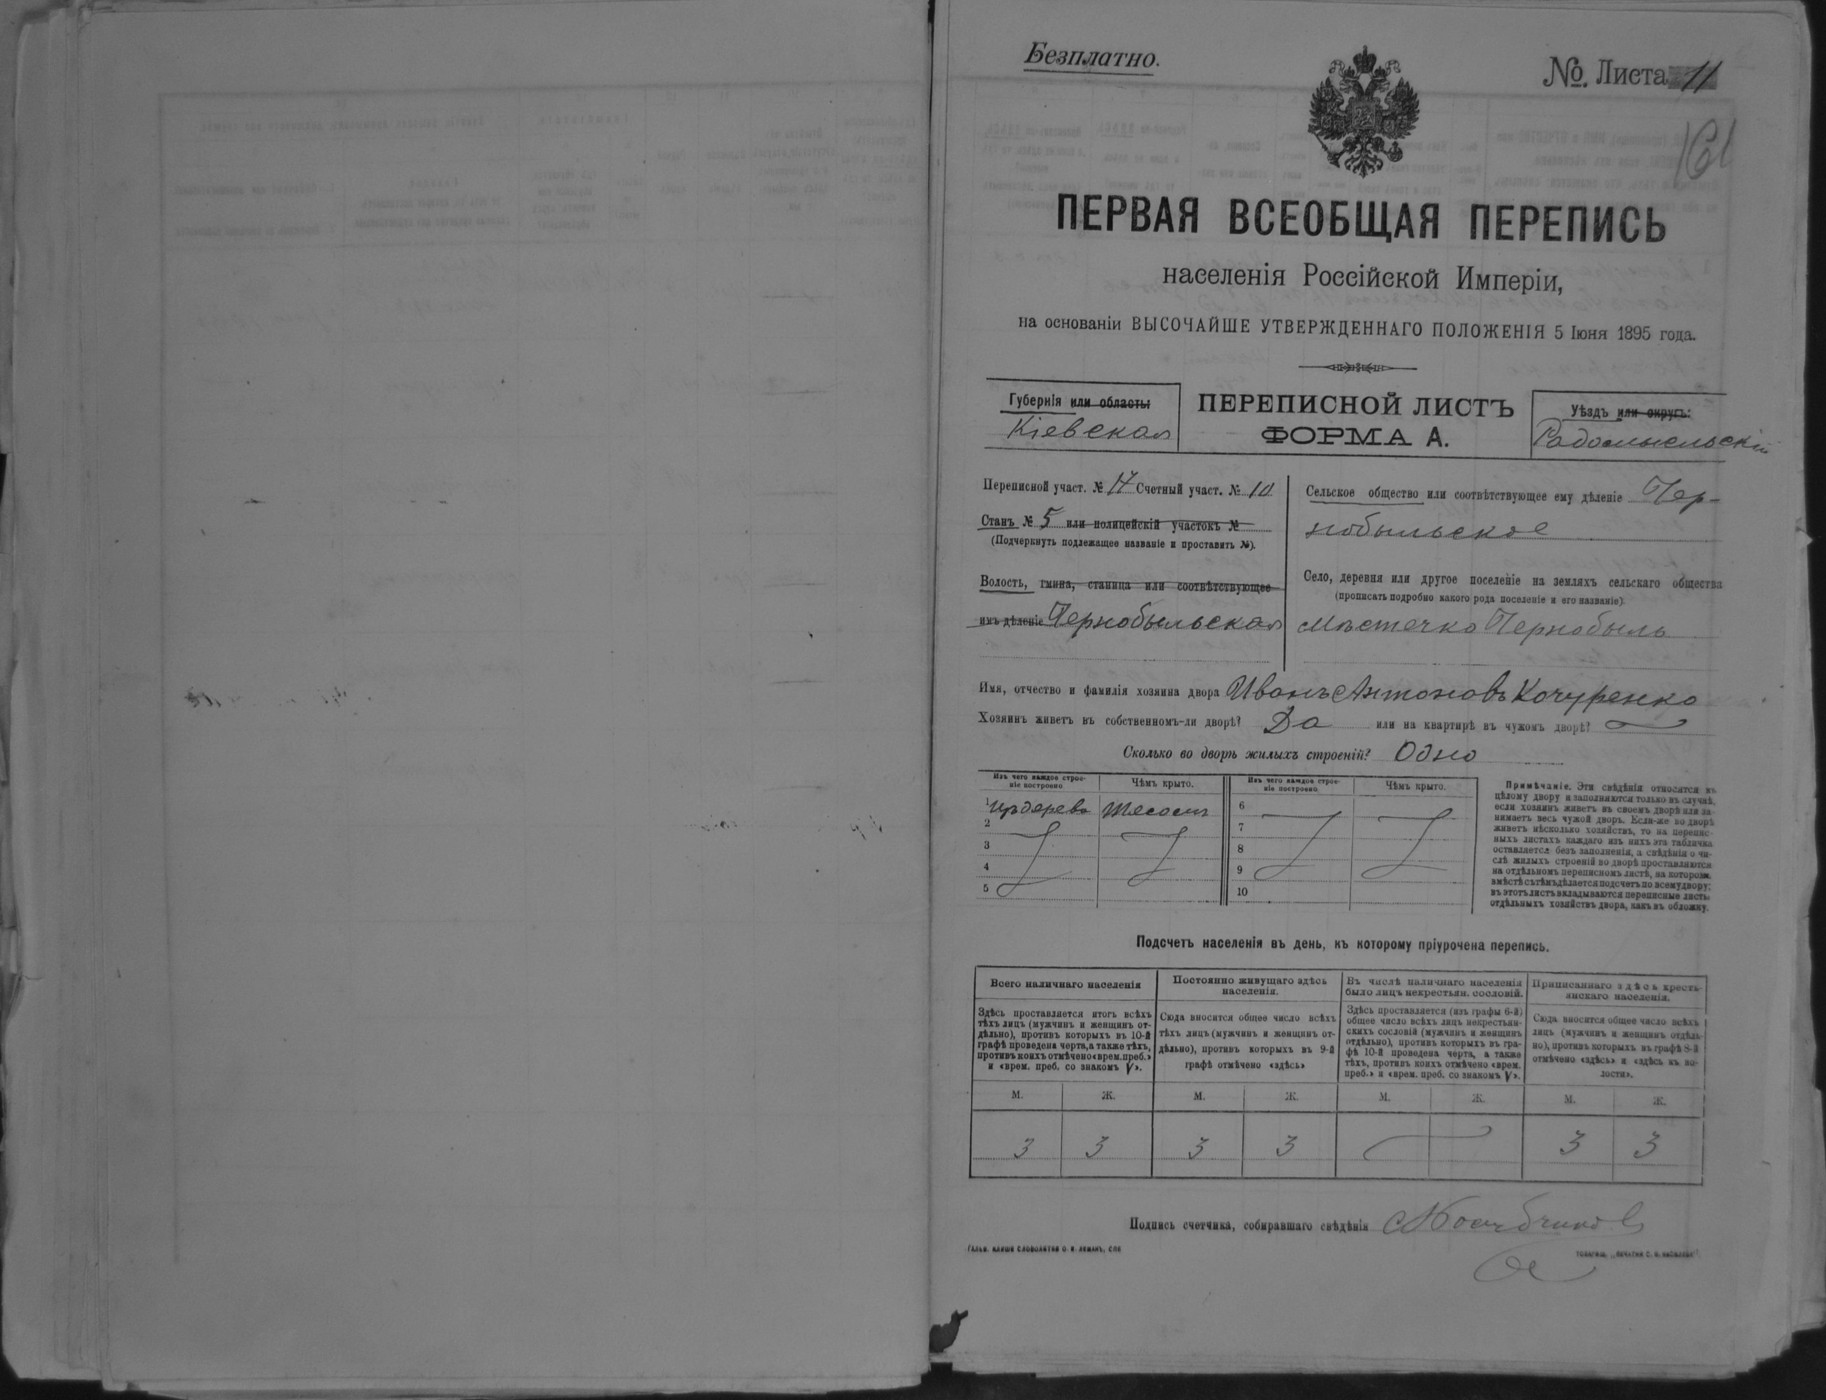 Безплатно.
№. Листа 11
ПЕРВАЯ ВСЕОБЩАЯ ПЕРЕПИСЬ
населенія Россійской Имперіи,
на основаніи ВЫСОЧАЙШЕ УТВЕРЖДЕННАГО ПОЛОЖЕНІЯ 5 Іюня 1895 года.
Губернія или область:
Кіевская
ПЕРЕПИСНОЙ ЛИСТЪ
ФОРМА А.
Уѣздъ или округъ:
Радомысльскій
Переписной участ. № 14 Счетный участ. № 10
Станъ № 5 или полицейскій участокъ №
(Подчеркнуть подлежащее названіе и проставить №).
Волость, гмина, станица или соотвѣтствующее
имъ дѣленіе Чернобыльская
Сельское общество или соотвѣтствующее ему дѣленіе Чер-
нобыльское
Село, деревня или другое поселеніе на земляхъ сельскаго общества
(прописать подробно какого рода поселеніе и его названіе)
мѣстечко Чернобыль
Имя, отчество и фамилія хозяина двора Иванъ Антоновъ Кочуренко
Хозяинъ живетъ въ собственномъ-ли дворѣ? Да или на квартирѣ въ чужомъ дворѣ?
Сколько во дворѣ жилыхъ строеній? Одно
Изъ чего каждое строе-
ніе построено
Чѣмъ крыто.
1 изъ дерева Тесомъ
2
3
4
5
Изъ чего каждое строе-
ніе построено
Чѣмъ крыто.
6
7
8
9
10
Примѣчаніе. Эти свѣдѣнія относятся къ
цѣлому двору и заполняются только въ случаѣ,
если хозяинъ живетъ въ своемъ дворѣ или за-
нимаетъ весь чужой дворъ. Если-же во дворѣ
живетъ нѣсколько хозяйствъ, то на перепис-
ныхъ листахъ каждаго изъ нихъ эта табличка
оставляется безъ заполненія, а свѣдѣнія о чи-
слѣ жилыхъ строеній во дворѣ проставляются
на отдѣльномъ переписномъ листѣ, на которомъ
вмѣстѣ съ тѣмъ дѣлается подсчетъ по всему двору;
въ этотъ листъ вкладываются переписные листы
отдѣльныхъ хозяйствъ двора, какъ въ обложку.
Подсчетъ населенія въ день, къ которому пріурочена перепись.
Всего наличнаго населенія
Здѣсь проставляется итогъ всѣхъ
тѣхъ лицъ (мужчинъ и женщинъ от-
дѣльно), противъ которыхъ въ 10-й
графѣ проведена черта, а также тѣхъ,
противъ коихъ отмѣчено «врем. преб.»
и «врем. преб. со знакомъ V».
Постоянно живущаго здѣсь
населенія.
Сюда вносится общее число всѣхъ
тѣхъ лицъ (мужчинъ и женщинъ от-
дѣльно), противъ которыхъ въ 9-й
графѣ отмѣчено «здѣсь»
Въ числѣ наличнаго населенія
было лицъ некрестьян. сословій.
Здѣсь проставляется (изъ графы 6-й)
общее число всѣхъ лицъ некрестьян-
скихъ сословій (мужчинъ и женщинъ
отдѣльно), противъ которыхъ въ гра-
фѣ 10-й проведена черта, а также
тѣхъ, противъ коихъ отмѣчено «врем.
преб.» и «врем. преб. со знакомъ V».
Приписаннаго здѣсь кресть-
янскаго населенія.
Сюда вносится общее число всѣхъ
лицъ (мужчинъ и женщинъ отдѣль-
но), противъ которыхъ въ графѣ 8-й
отмѣчено «здѣсь» и «здѣсь къ во-
лости».
М. Ж. М. Ж. М. Ж. М. Ж.
3 3 3 3 3 3
Подпись счетчика, собиравшаго свѣдѣнія